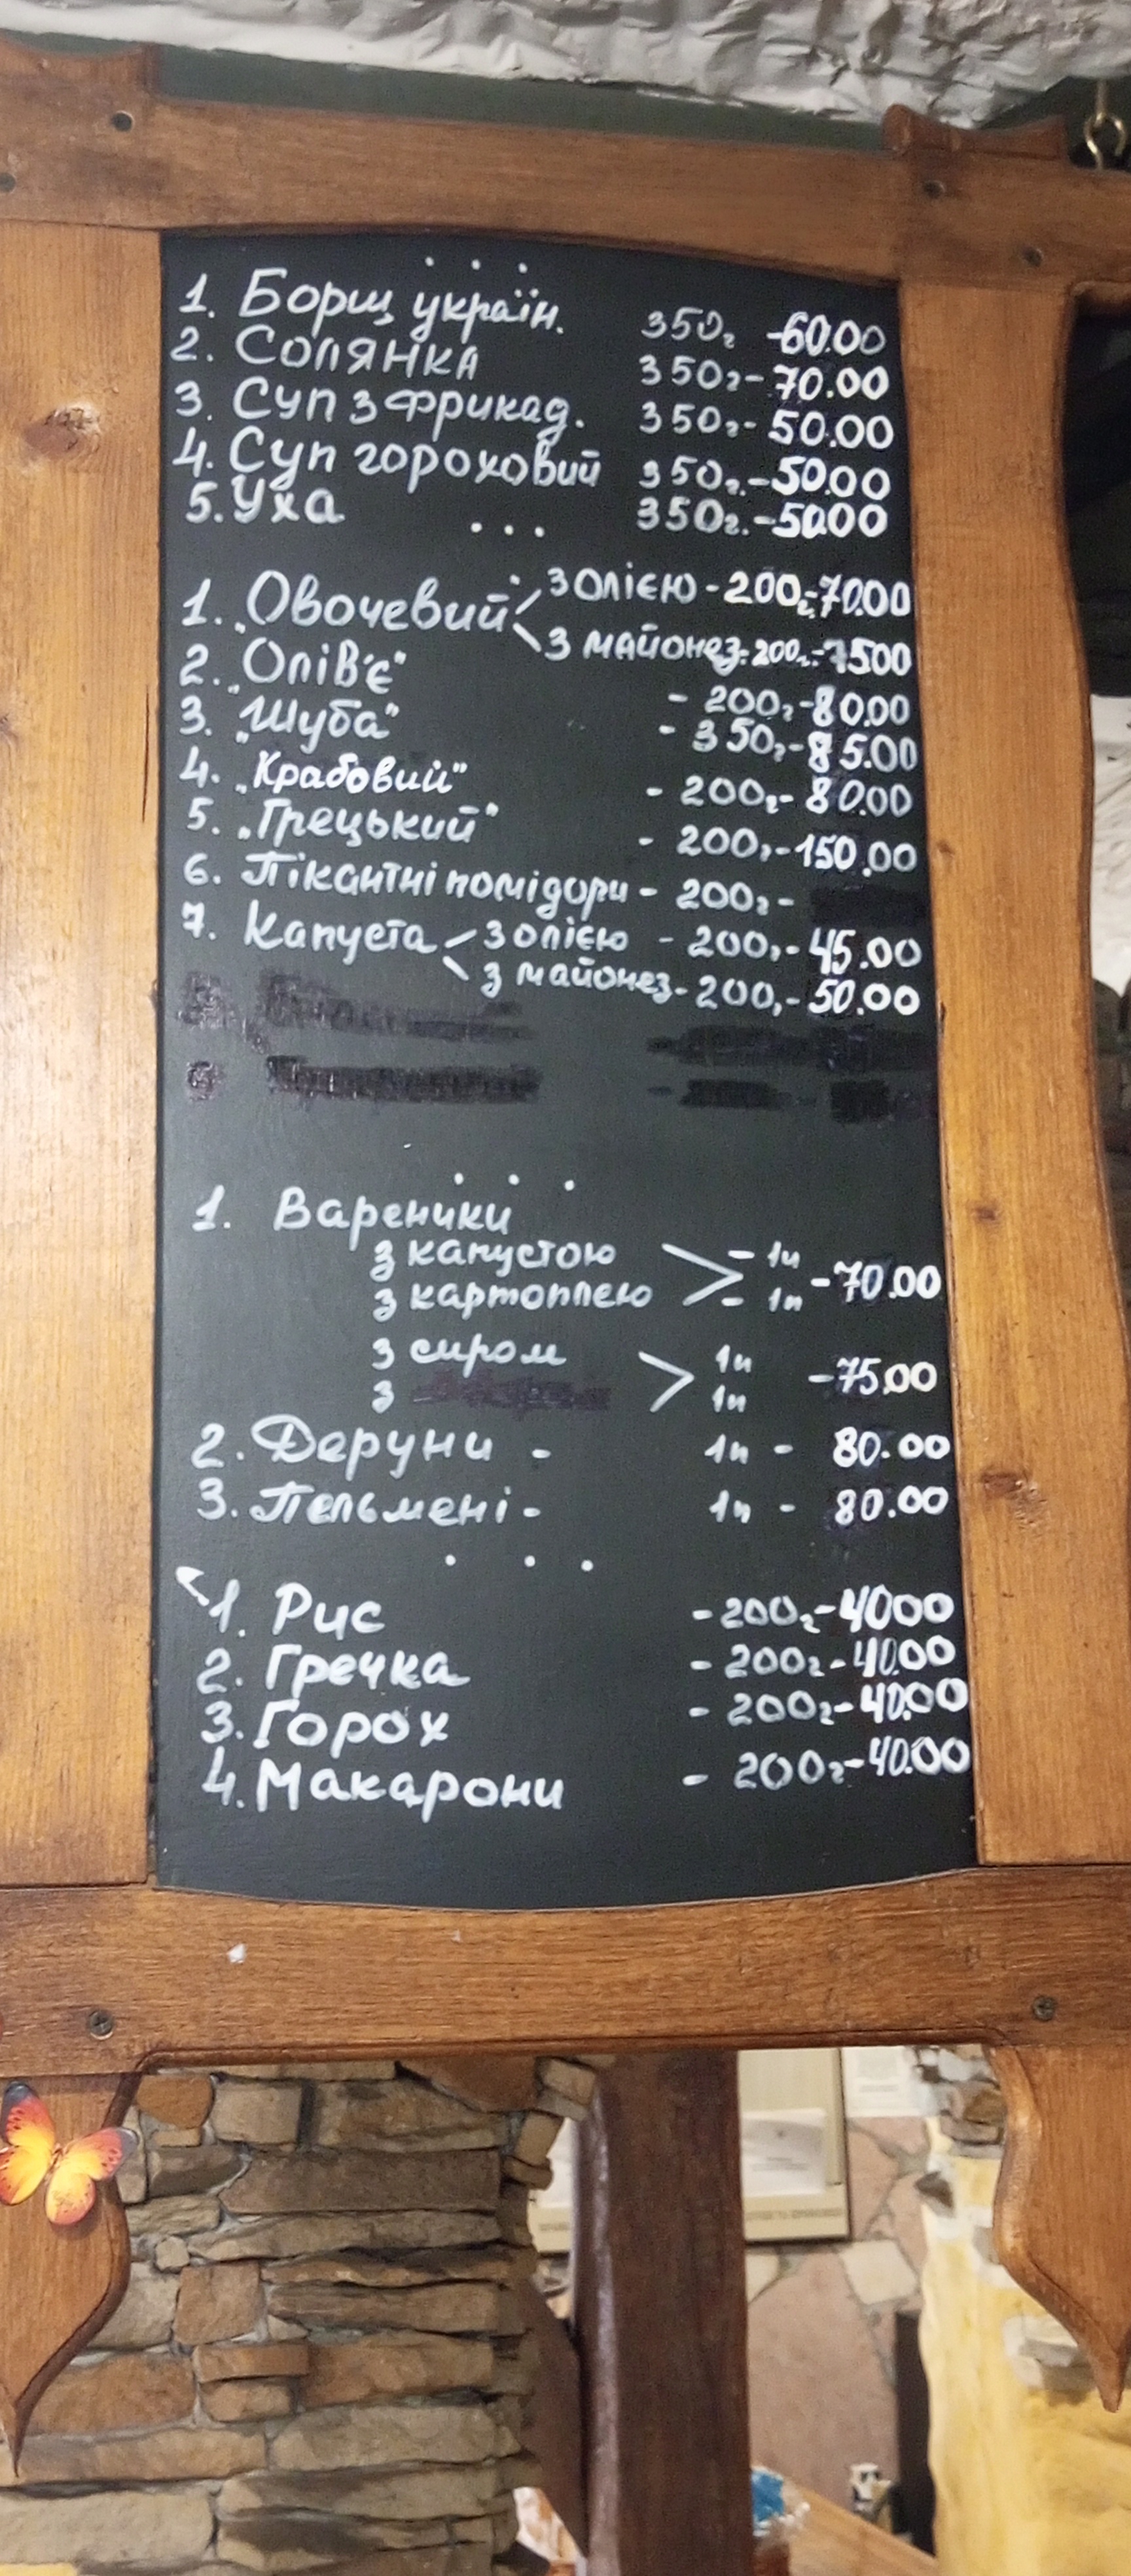 . . .
1. Борщ україн. 350г -60.00
2. Солянка 350г-70.00
3. Суп з фрикад. 350г-50.00
4. Суп гороховий 350г.-50.00
5. Уха 350г.-50.00
. . .
1. Овочевий з олією-200г-70.00
з майонез.200г.-75.00
2. „Олів'є" - 200г-80.00
3. „Шуба" - 350г-85.00
4. „Крабовий" - 200г-80.00
5. „Грецький" - 200г-150.00
6. Пікантні помідори - 200г-
7. Капуста з олією - 200г-45.00
з майонез-200г-50.00
. . .
1. Вареники
з капустою - 1п
з картоплею - 1п -70.00
з сиром 1п
з 1п -75.00
2. Деруни - 1п - 80.00
3. Пельмені - 1п - 80.00
. . .
1. Рис -200г-40.00
2. Гречка - 200г-40.00
3. Горох - 200г-40.00
4. Макарони - 200г-40.00